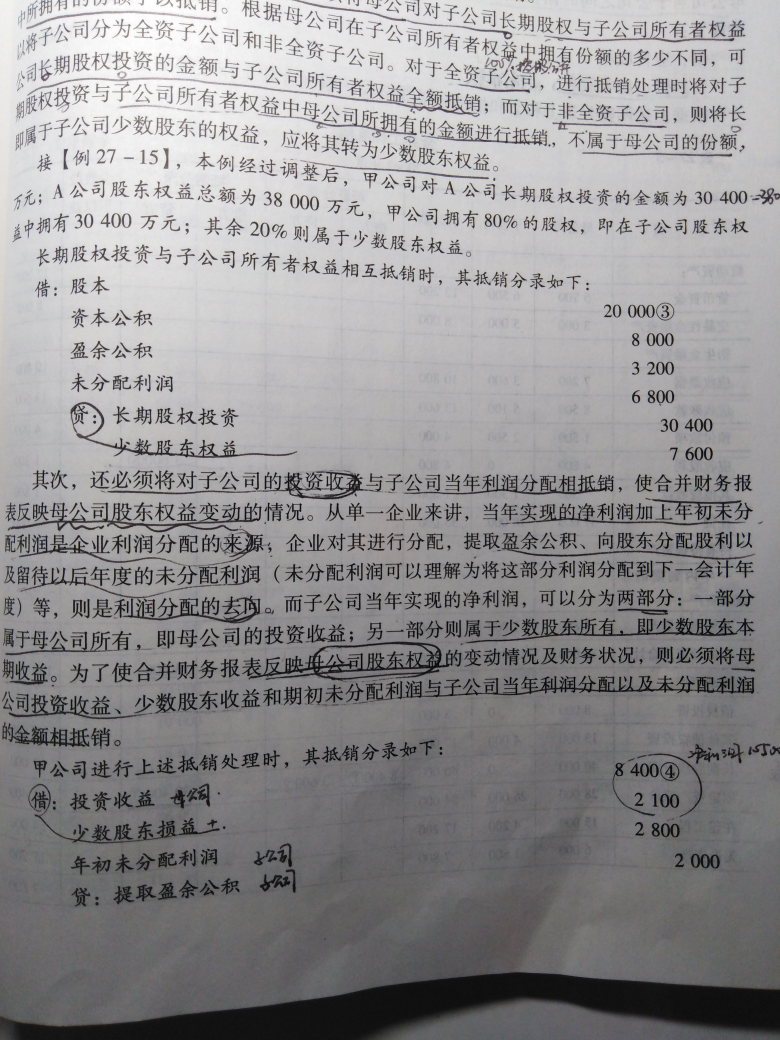 中所拥有的份额予以抵销。根据母公司在子公司所有者权益中拥有份额的多少不同，可
母公司对子公司长期股权与子公司所有者权益
以将子公司分为全资子公司和非全资子公司。对于全资子公司，进行抵销处理时将对子
公司长期股权投资的金额与子公司所有者权益全额抵销；而对于非全资子公司，则将长
期股权投资与子公司所有者权益中母公司所拥有的金额进行抵销，不属于母公司的份额，
即属于子公司少数股东的权益，应将其转为少数股东权益。
接【例27-15】，本例经过调整后，甲公司对A公司长期股权投资的金额为30 400
万元；A公司股东权益总额为38 000万元，甲公司拥有80%的股权，即在子公司股东权
益中拥有30 400万元；其余20%则属于少数股东权益。
长期股权投资与子公司所有者权益相互抵销时，其抵销分录如下：
借：股本 20 000③
资本公积 8 000
盈余公积 3 200
未分配利润 6 800
贷：长期股权投资 30 400
少数股东权益 7 600
其次，还必须将对子公司的投资收益与子公司当年利润分配相抵销，使合并财务报
表反映母公司股东权益变动的情况。从单一企业来讲，当年实现的净利润加上年初未分
配利润是企业利润分配的来源，企业对其进行分配，提取盈余公积、向股东分配股利以
及留待以后年度的未分配利润（未分配利润可以理解为将这部分利润分配到下一会计年
度）等，则是利润分配的去向。而子公司当年实现的净利润，可以分为两部分：一部分
属于母公司所有，即母公司的投资收益；另一部分则属于少数股东所有，即少数股东本
期收益。为了使合并财务报表反映母公司股东权益的变动情况及财务状况，则必须将母
公司投资收益、少数股东收益和期初未分配利润与子公司当年利润分配以及未分配利润
的金额相抵销。
甲公司进行上述抵销处理时，其抵销分录如下：
借：投资收益 母公司. 8 400④
少数股东损益 +. 2 100
年初未分配利润 子公司 2 800
贷：提取盈余公积 子公司 2 000